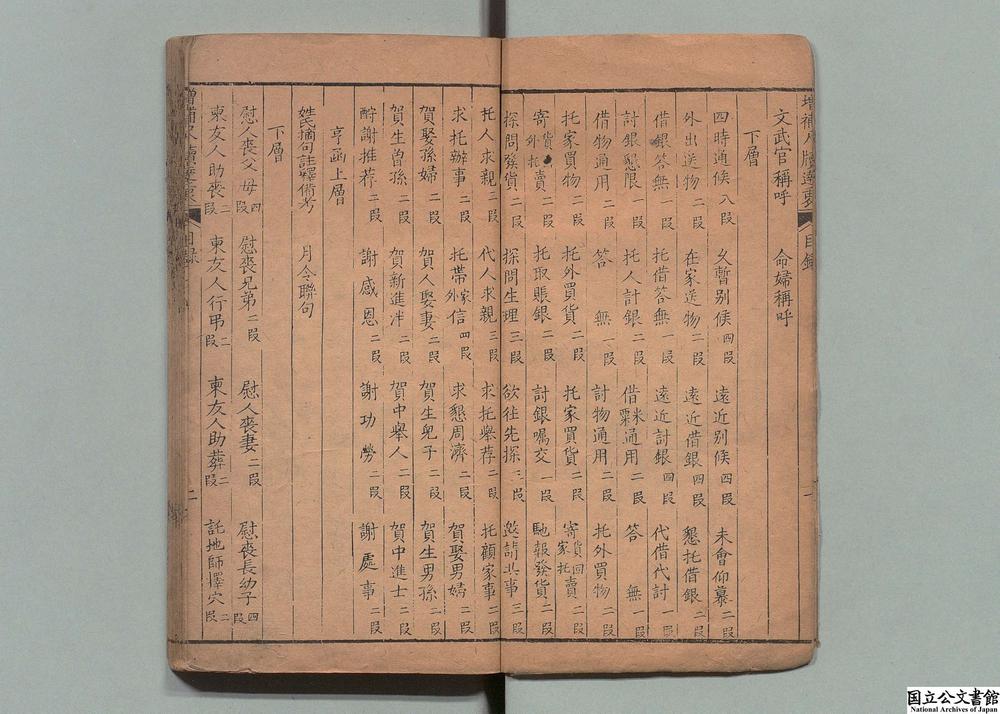 目錄
文武官稱呼 命婦稱呼
下層
四時通候 八段 久暫別候 四段 遠近別候 四段 未會仰慕 二段
外出送物 二段 在家送物 二段 遠近借銀 四段 懇托借銀 二段
借銀答無 一段 托借答無 一段 遠近討銀 四段 代借代討 一段
討銀懇限 一段 托人討銀 二段 借米粟通用 二段 答無 一段
借物通用 二段 答無 一段 討物通用 二段 托外買物 二段
托家買物 二段 托外買貨 二段 托家買貨 二段 寄貨回家托賣 二段
寄貨外托賣 二段 托取賬銀 二段 討銀囑交 一段 馳報發貨 二段
探問發貨 二段 探問生理 三段 欲往先探 三段 邀請共事 三段
托人求親 二段 代人求親 三段 求托舉荐 二段 托顧家事 二段
求托辦事 二段 托帶家外信 四段 求懇周濟 二段 賀娶男婦 二段
賀娶孫婦 二段 賀人娶妻 二段 賀生兒子 二段 賀生男孫 二段
賀生曾孫 二段 賀新進泮 二段 賀中舉人 二段 賀中進士 二段
酧謝推荐 二段 謝感恩 二段 謝功勞 二段 謝處事 二段
亨函上層
姓氏摘句註釋備考 月令聯句
下層
慰人喪父母 四段 慰喪兄弟 二段 慰人喪妻 二段 慰喪長幼子 四段
柬友人助喪 二段 柬友人行弔 二段 柬友人助葬 二段 託地師擇穴 二段
目錄 二
国立公文書館
National Archives of Japan